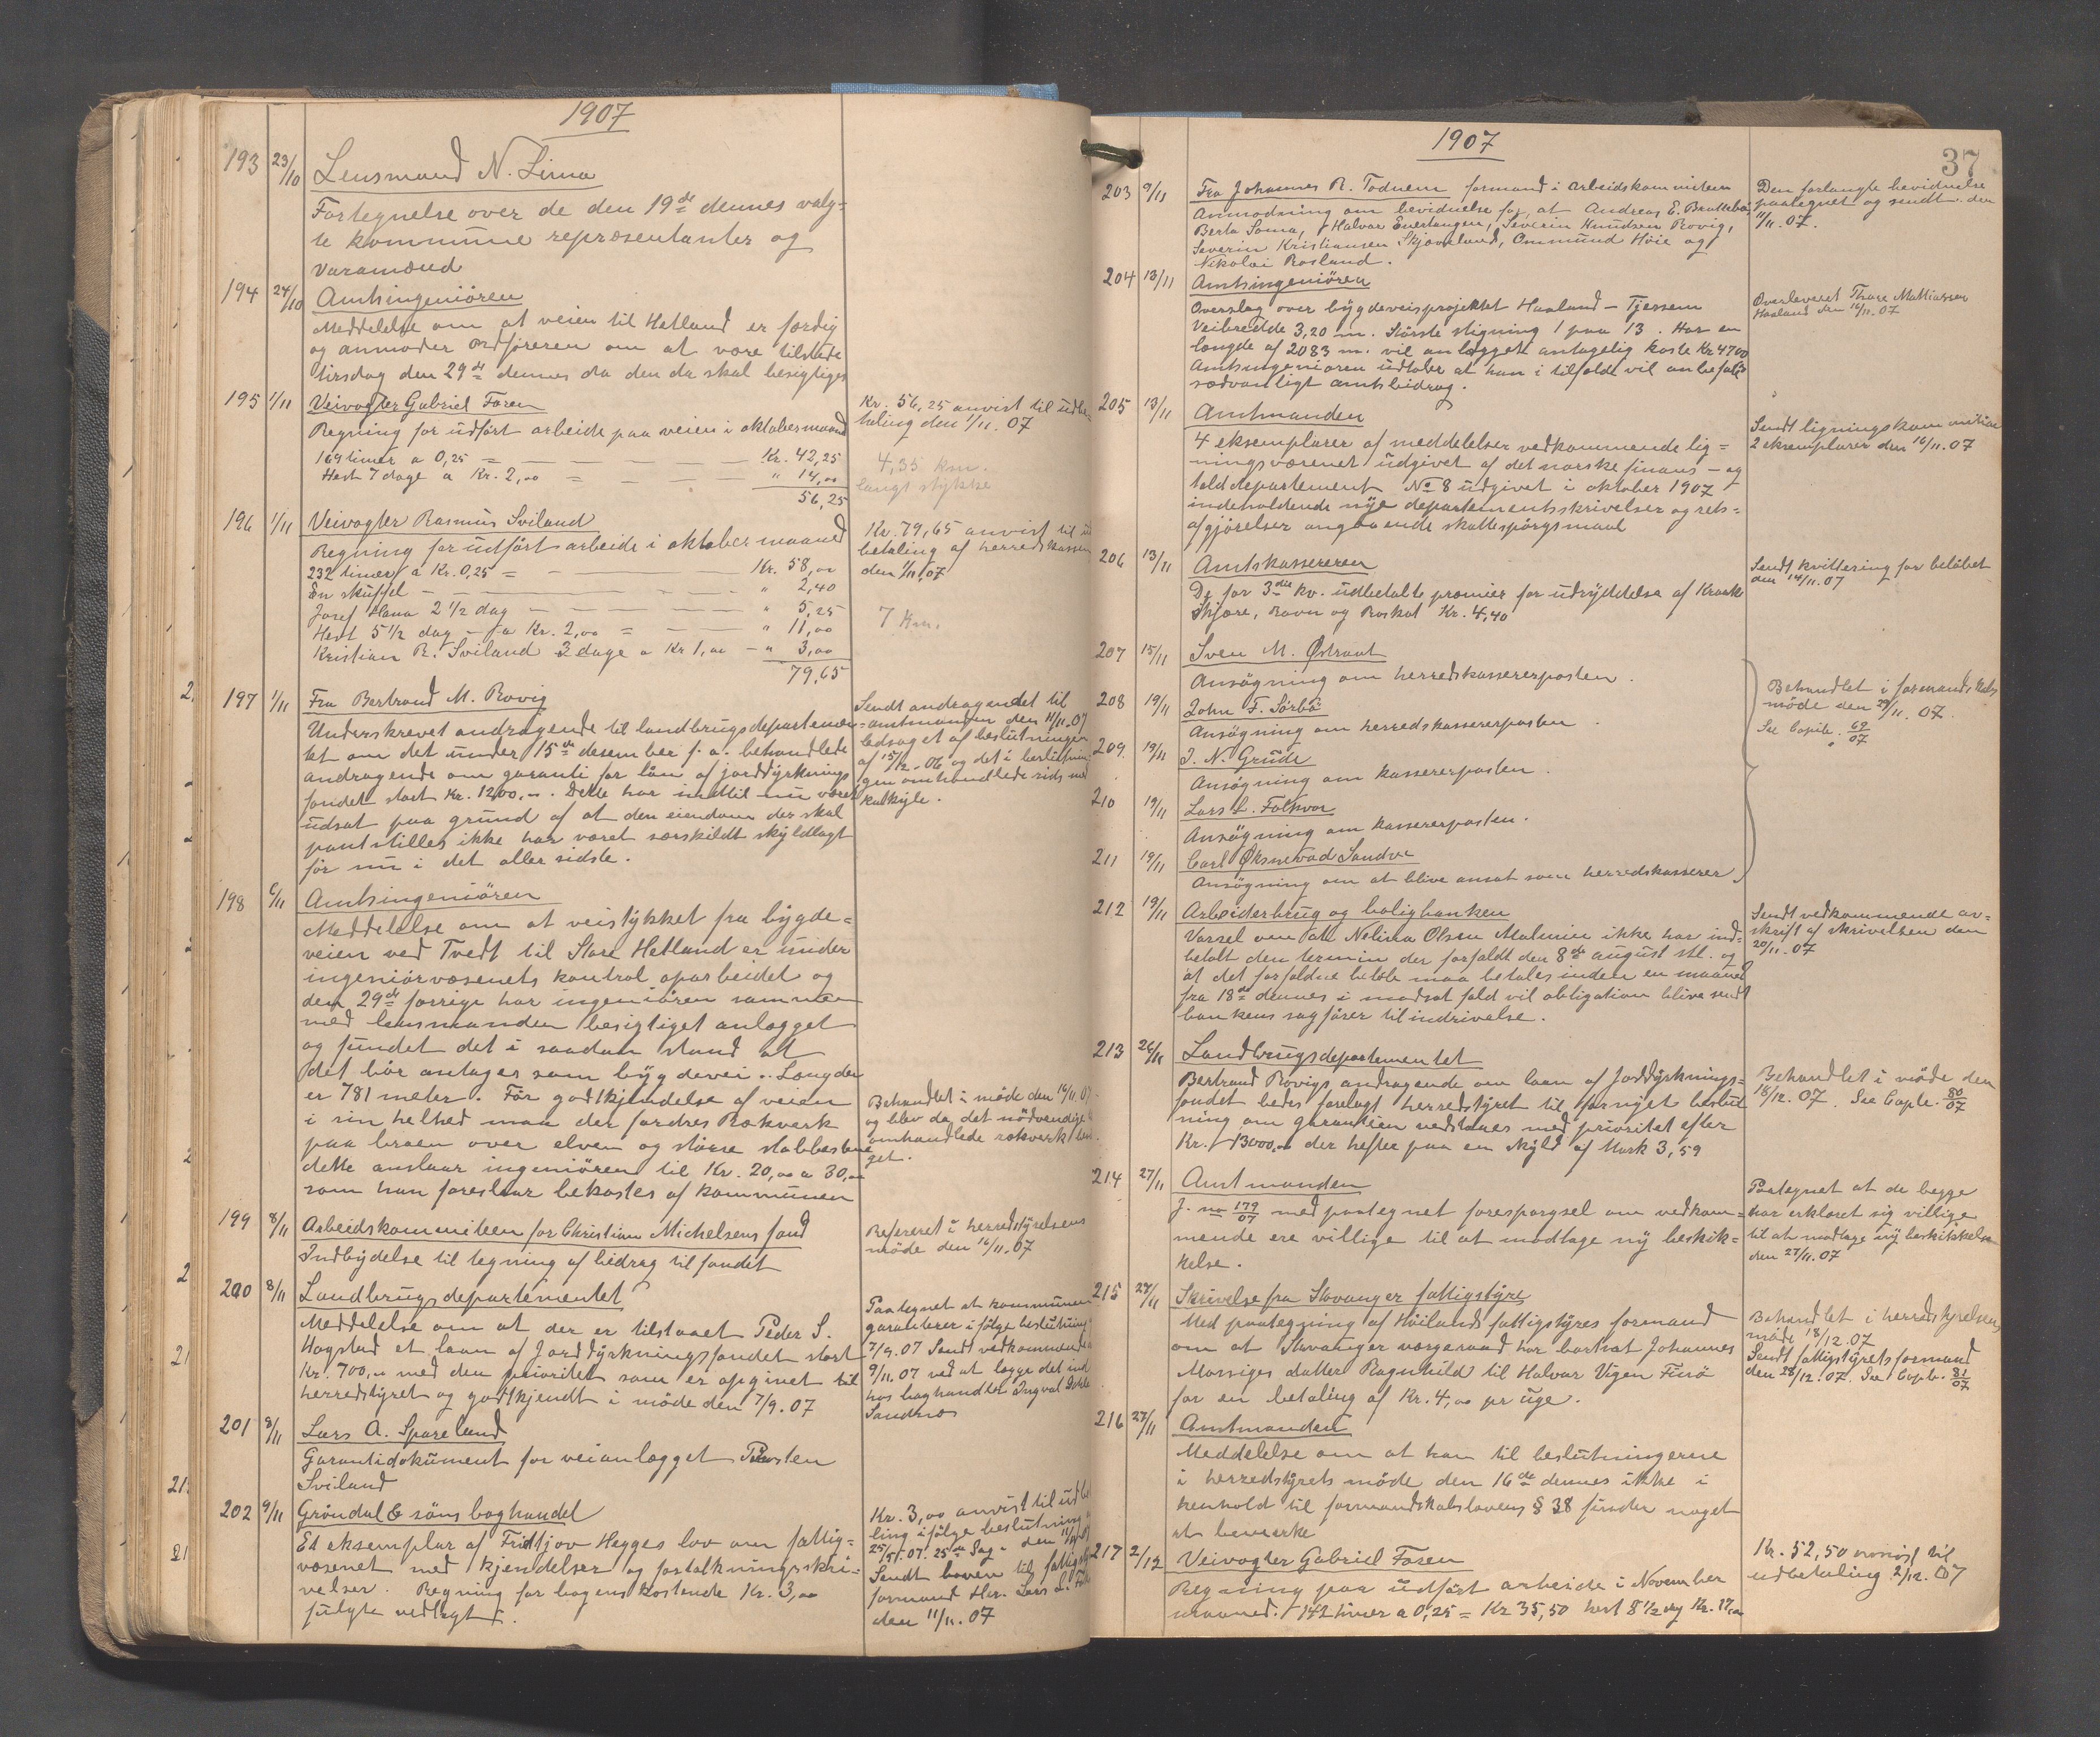 1907
193 23/10 Lensmand N. Lima
Fortegnelse over de den 19de dennes valg=
te kommune repræsentanter og
varamænd
194 24/10 Amtsingeniören
Meddelelse om at veien til Hetland er færdig
og anmoder ordföreren om at være tilstede
tirsdag den 29de dennes da den da skal besigtiges
195 1/11 Veivogter Gabriel Foren
Regning for udfört arbeide paa veien i oktobermaaned
169 timer a 0,25 = Kr. 42,25
Hest 7 dage a Kr. 2,00 = " 14,00
56,25
Kr. 56,25 anvist til udbe
taling den 1/11. 07
4,35 km.
langt stykke
196 1/11 Veivogter Rasmus Sviland
Regning for udfört arbeide i oktober maaned
232 timer a Kr. 0,25 = Kr. 58,00
En skuffel " 2,40
Josef Hana 2 1/2 dag " 5,25
Hest 5 1/2 dag a Kr. 2,00 = " 11,00
Kristian R. Sviland 3 dage a Kr 1,00 " 3,00
79,65
Kr. 79,65 anvist til ud
betaling af herredskassen
den 1/11. 07
7 Km.
197 1/11 Fra Bertrand M. Rovig
Underskrevet andragende til landbrugsdepartemen=
tet om det under 15de desember f. a. behandlede
andragende om garanti for lån af jorddyrknings
fondet stort Kr. 1200,-. Dette har indtil nu været
udsat paa grund af at den eiendom der skal
pantstilles ikke har været særskildt skyldlagt
för nu i det aller sidste.
Sendt andragendet til
amtmanden den 11/11. 07
ledsaget af beslutningen
af 15/12. 06 og det i beslutnin
gen omhandlede
198 6/11 Amtsingeniören
Meddelelse om at veistykket fra bygde=
veien ved Tvedt til Store Hetland er under
ingeniörvæsenets kontrol oparbeidet og
den 29de forrige har ingeniören sammen
med lensmanden besigtiget anlægget
og fundet det i saadan stand at
det bör antages som bygdevei. Længden
er 781 meter. För godtkjendelse af veien
i sin helhed maa der fordres Rækværk
paa broen over elven og större stabbestene
dette anslaar ingeniören til Kr. 20,00 a 30,00
som han foreslaar bekostes af kommunen
Behandlet i möde den 16/11. 07
og blev da det nödvendige
omhandlede rækværk
199 8/11 Arbeidskommiteen for Christian Michelsens fond
Indbydelse til tegning af bidrag til fondet
Refereret i herredstyrelsens
möde den 16/11. 07
200 8/11 Landbrugsdepartementet
Meddelelse om at der er tilstaaet Peder S.
Hogstad et laan af Jorddyrkningsfondet stort
Kr. 700,00 med den prioritet som er opgivet til
herredstyret og godtkjendt i möde den 7/9. 07
Paategnet at kommunen
garanterer i fölge beslutning
7/9. 07 Sendt vedkommende
9/11. 07 ved at lægge det ind
hos boghandler Ingval
Sandnes
201 8/11 Lars A. Spareland
Garantidokument for veianlægget Prosten
Sviland
202 9/11 Gröndal & söns boghandel
Et eksemplar af Fridtjov Hegges lov om fattig=
væsenet med kjendelser og fortolkningsskri=
velser. Regning for bogens kostende Kr. 3,00
fulgte vedlagt.
Kr. 3,00 anvist til udbe
ling ifölge beslutning
25/5. 07. 25de Sag. den 11/11 07
Sendt loven til fattigsty
formand Hr. Lars L.
den 11/11. 07
1907
37
203 9/11 Fra Johannes R. Todnem formand i arbeidskommiteen
Anmodning om bevidnelse for, at Andreas E. Bratteboe
Berta Soma, Halvar Enertangen, Severin Knudsen Rovig,
Severin Kristiansen Skjæveland, Ommund Höie og
Nikolai Rosland.
Den forlangte bevidnelse
paategnet og sendt den
11/11. 07.
204 13/11 Amtsingeniören
Overslag over bygdeveisprojektet Haaland - Tjessem
Veibredde 3,20 m. Störste stigning 1 paa 13. Har en
længde af 2083 m. vil anlægget antagelig koste Kr 4700
Amtsingeniören udtaler at han i tilfælde vil anbefale
sædvanligt amtsbidrag.
Overleveret Thore Mathiassen
Haaland den 16/11. 07
205 13/11 Amtmanden
4 eksemplarer af meddelelser vedkommende lig=
ningsvæsenet udgivet af det norske finans - og
tolddepartement No 8 udgivet i oktober 1907
indeholdende nye departementsskrivelser og rets=
afgjörelser angaaende skattespörgsmaal
Sendt ligningskommission
2 eksemplarer den 16/11. 07
206 13/11 Amtskassereren
De for 3die kv. udbetalte præmier for udryddelse af Kraake
Skjære, Ravn og Röskat Kr. 4,40
Sendt kvittering for belöbet
den 14/11. 07
207 15/11 Sven M. Østraat
Ansögning om herredskassererposten.
208 19/11 John F. Sörbö
Ansögning om herredskassererposten.
209 19/11 I. N. Grude
Ansögning om kassererposten.
210 19/11 Lars L. Folkvor
Ansögning om kassererposten.
211 19/11 Carl Øksnevad Sandve
Ansögning om at blive ansat som herredskasserer
Behandlet i formandskabs
möde den 29/11. 07.
See Copib. 69/07
212 19/11 Arbeiderbrug og boligbanken
Varsel om at Nelina Olsen Malmin ikke har ind=
betalt den termin der forfaldt den 8de august stl. og
at det forfaldne belöb maa betales inden en maaned
fra 18de dennes i modsat fald vil obligation blive sendt
bankens sagförer til indrivelse.
Sendt vedkommende av=
skrift af skrivelsen den
20/11. 07
213 26/11 Landbrugsdepartementet
Bertrand Rovigs andragende om laan af Jorddyrknings=
fondet bedes forelagt herredstyret til fornyet beslut
ning om garantien vedstaaes med prioritet efter
Kr. 13000,00 der hefter paa en skyld af Mark 3,59
Behandlet i möde den
18/12. 07. See Copb. 80/07
214 27/11 Amtmanden
J. no 179/07 med paategnet forespörgsel om vedkom=
mende ere villige til at modtage ny beskik=
kelse.
Paategnet at de begge
har erklæret sig villige
til at modtage ny beskikkelse
den 27/11. 07
215 27/11 Skrivelse fra Stavanger fattigstyre
Med paategning af Höilands fattigstyres formand
om at Stavanger værgeraad har bortsat Johannes
Mossiges datter Ragnhild til Halvar Vigen Finö
for en betaling af Kr. 4,00 pr uge.
Behandlet i herredstyrelsens
möde 18/12. 07
Sendt fattigstyrets formand
den 28/12. 07. See Copb. 81/07
216 27/11 Amtmanden
Meddelelse om at han til beslutningerne
i herredstyrets möde den 16de dennes ikke i
henhold til formandskabslovens § 38 finder noget
at bemærke
217 2/12 Veivogter Gabriel Foren
Regning paa udfört arbeide i November
maaned. 142 timer a 0,25 = Kr 35,50 hest 8 1/2 dag Kr. 17,00
Kr. 52,50 anvist til
udbetaling 2/12. 07